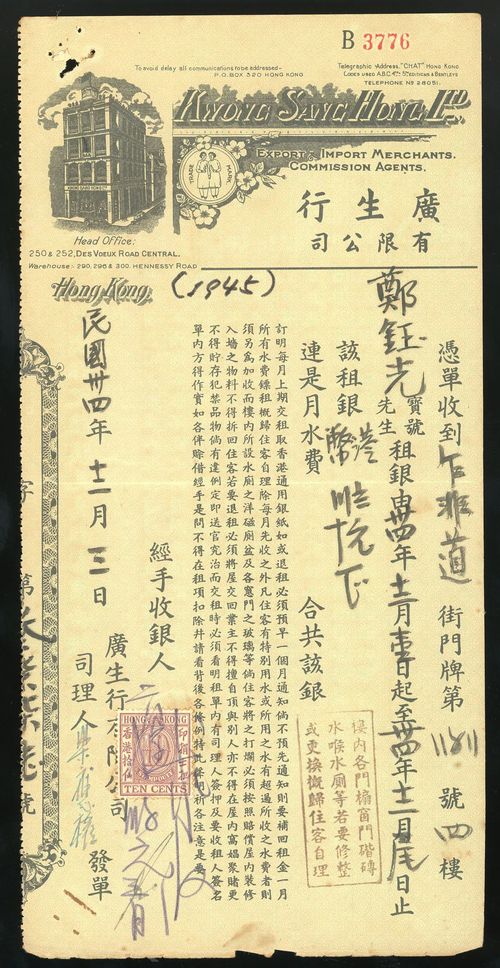 B 3776
To avoid delay all communications to be addressed-
P.O. BOX 320 HONG KONG
Telegraphic Address, "CHAT" HONG KONG
CODES USED A.B.C. 4TH 5TH EDITIONS & BENTLEYS
TELEPHONE NO 28051.
KWONG SANG HONG, LTD
TRADE MARK
EXPORT & IMPORT MERCHANTS.
COMMISSION AGENTS.
廣生行
有限公司
Head Office:
250 & 252, DES VOEUX ROAD CENTRAL.
Warehouse:- 290, 296 & 300. HENNESSY ROAD
Hong Kong,
(1945)
憑單收到乍菲道街門牌第號四樓
鄭鈺光寶號先生租銀由卅四年十二月壹日起至卅四年十二月尾日止
該租銀港幣
連是月水費
合共該銀
訂明每月上期交租取香港通用銀紙如或退租必須預早一個月通知倘不預先通知則要補回租金一月
所有水費鏢租概歸住客自理除每月先收之外凡住客有特別用水或所用之水有超過所收之水費者則
須另為加收而樓內所設水廁之洋磁廁盆及各窻門之玻璃等倘住客將之打爛必須按照賠償屋內裝修
入墻之物料不得拆回住客若要退租必須將屋交回業主不得擅自頂與別人亦不得在屋內窩娼聚賭更
不得貯存犯禁品物倘有違例定即送官究治而交租時必須看明租單內有司理人簽押及要收租人簽名
單內方得作實如各伴賒借經手是問不得在租項扣除幷請看背後各條例特此聲明祈各注意是要
樓內各門櫥窗門階磚
水喉水廁等若要修整
或更換概歸住客自理
經手收銀人
HONG KONG
香港
TEN CENTS
廣生行有限公司
司理人
發單
民國卅四年十二月三日
字第
號